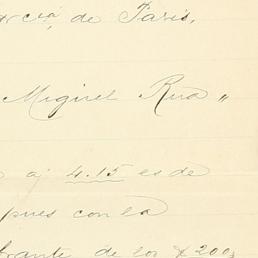 de Paris,
Miguel Rua „
a 4.15 es de
pues con la
de los $200